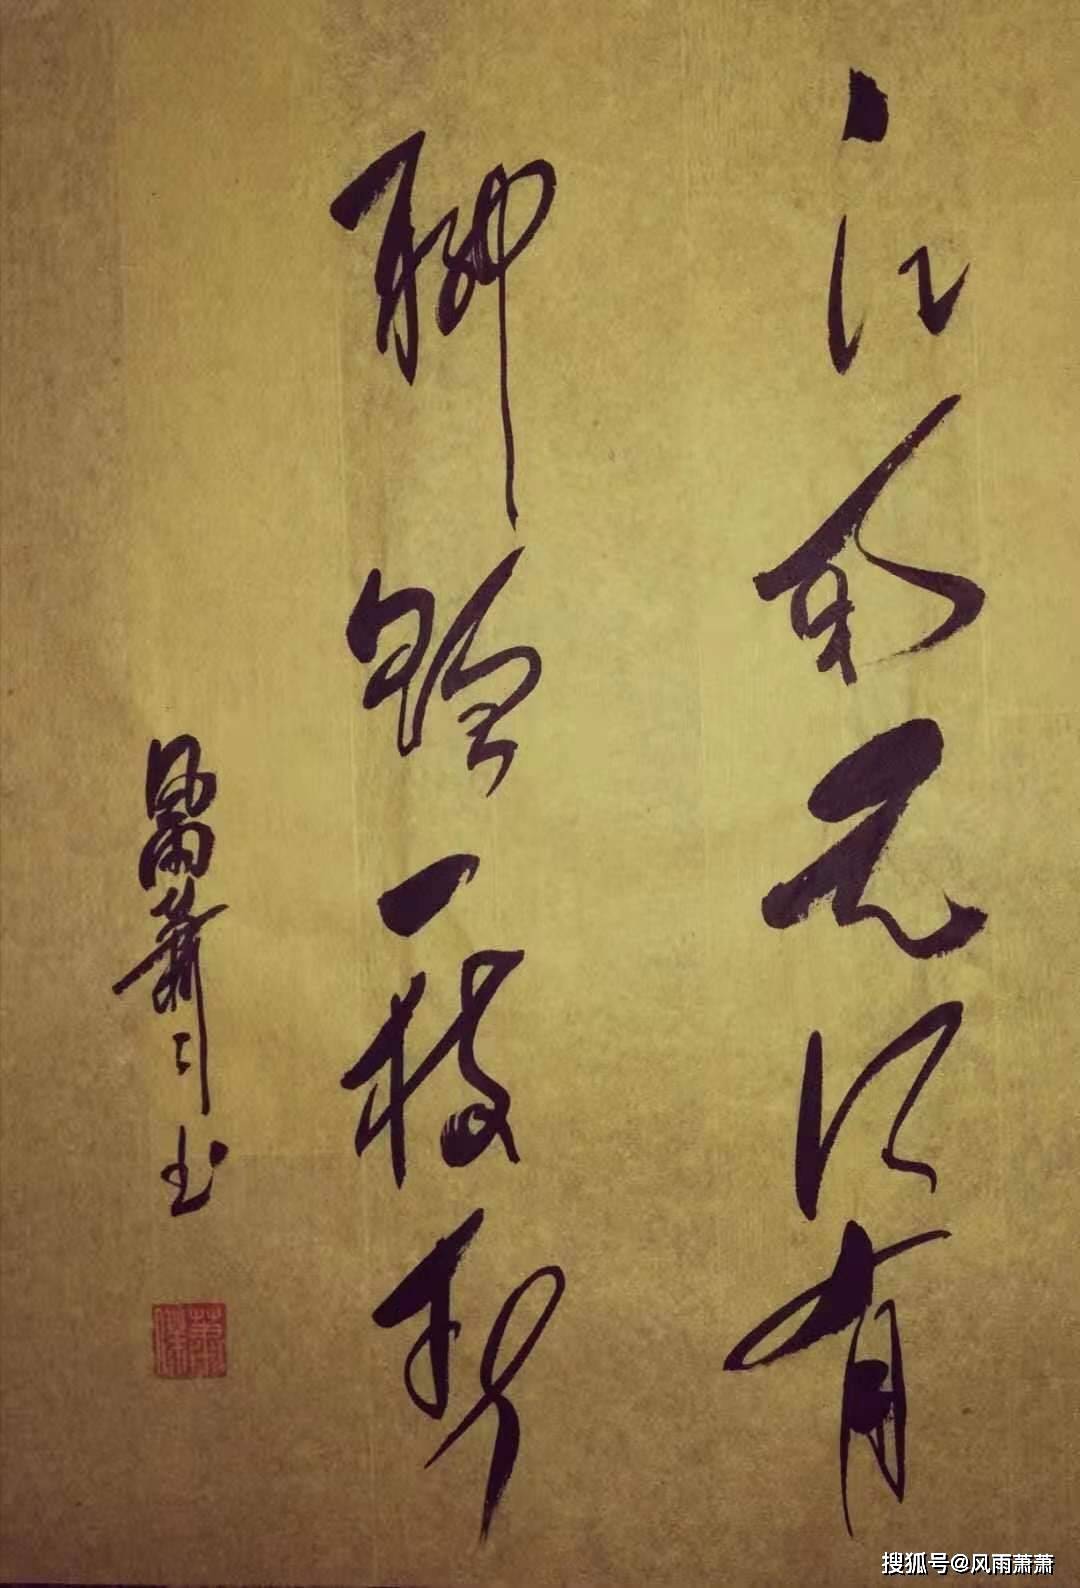 江南无所有
聊赠一枝春
风雨萧萧书
搜狐号@风雨萧萧